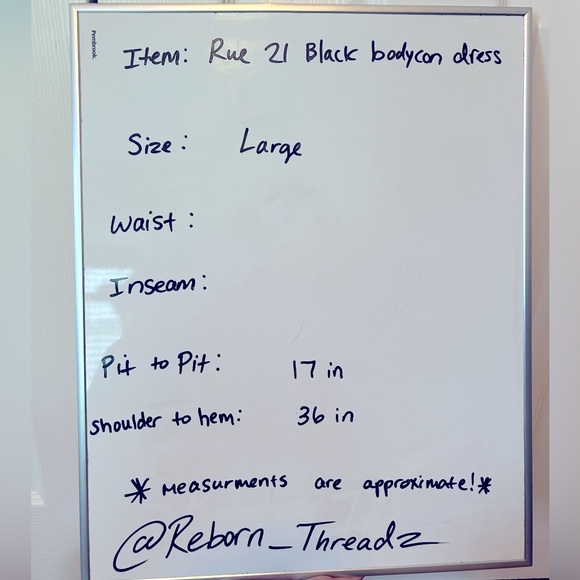 Pembrook.
Item: Rue 21 Black bodycon dress
Size: Large
Waist:
Inseam:
Pit to Pit: 17 in
Shoulder to hem: 36 in
* Measurments are approximate! *
@Reborn_Threadz